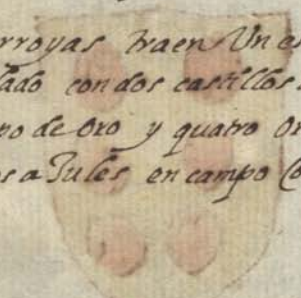 rroyas traen Un es
lado con dos castillos
po de Oro y quatro On
os a Zules en campo Co